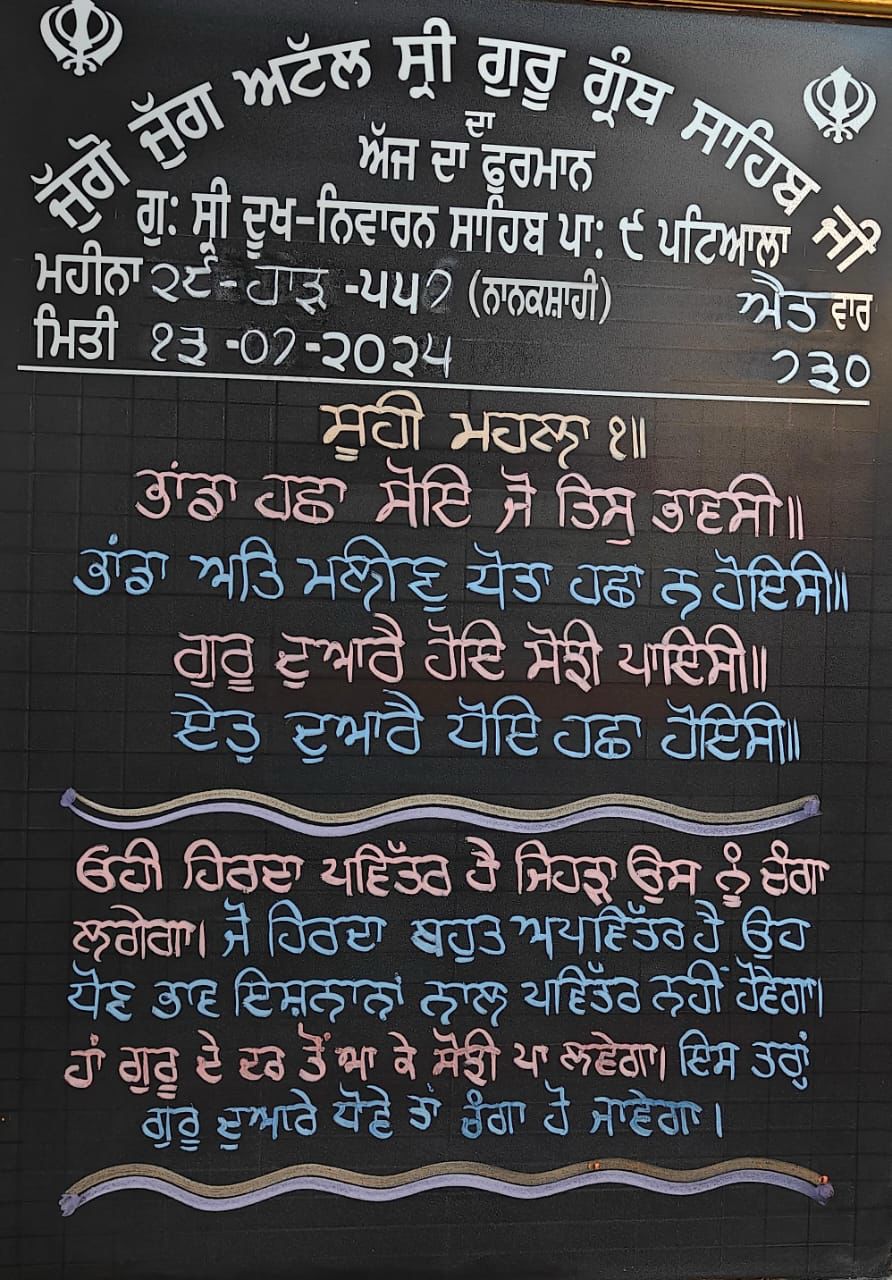 ਜੁੱਗੋ ਜੁੱਗ ਅਟੱਲ ਸ੍ਰੀ ਗੁਰੂ ਗ੍ਰੰਥ ਸਾਹਿਬ ਜੀ
ਦਾ
ਅੱਜ ਦਾ ਫੁਰਮਾਨ
ਗੁ: ਸ੍ਰੀ ਦੂਖ-ਨਿਵਾਰਨ ਸਾਹਿਬ ਪਾ: ੯ ਪਟਿਆਲਾ
ਮਹੀਨਾ ੨੯-ਹਾੜ -੫੫੭ (ਨਾਨਕਸ਼ਾਹੀ) ਐਤ ਵਾਰ
ਮਿਤੀ ੧੩ -੦੭-੨੦੨੫ ੭੩੦
ਸੂਹੀ ਮਹਲਾ ੧॥
ਭਾਂਡਾ ਹਛਾ ਸੋਇ ਜੋ ਤਿਸੁ ਭਾਵਸੀ॥
ਭਾਂਡਾ ਅਤਿ ਮਲੀਣੁ ਧੋਤਾ ਹਛਾ ਨ ਹੋਇਸੀ॥
ਗੁਰੂ ਦੁਆਰੈ ਹੋਇ ਸੋਝੀ ਪਾਇਸੀ॥
ਏਤੁ ਦੁਆਰੈ ਧੋਇ ਹਛਾ ਹੋਇਸੀ॥
ਓਹੀ ਹਿਰਦਾ ਪਵਿੱਤਰ ਹੈ ਜਿਹੜਾ ਉਸ ਨੂੰ ਚੰਗਾ
ਲਗੇਗਾ। ਜੋ ਹਿਰਦਾ ਬਹੁਤ ਅਪਵਿੱਤਰ ਹੈ ਉਹ
ਧੋਣ ਭਾਵ ਇਸ਼ਨਾਨਾਂ ਨਾਲ ਪਵਿੱਤਰ ਨਹੀਂ ਹੋਵੇਗਾ।
ਹਾਂ ਗੁਰੂ ਦੇ ਦਰ ਤੋਂ ਆ ਕੇ ਸੋਝੀ ਪਾ ਲਵੇਗਾ। ਇਸ ਤਰ੍ਹਾਂ
ਗੁਰੂ ਦੁਆਰੇ ਧੋਵੇ ਤਾਂ ਚੰਗਾ ਹੋ ਜਾਵੇਗਾ।